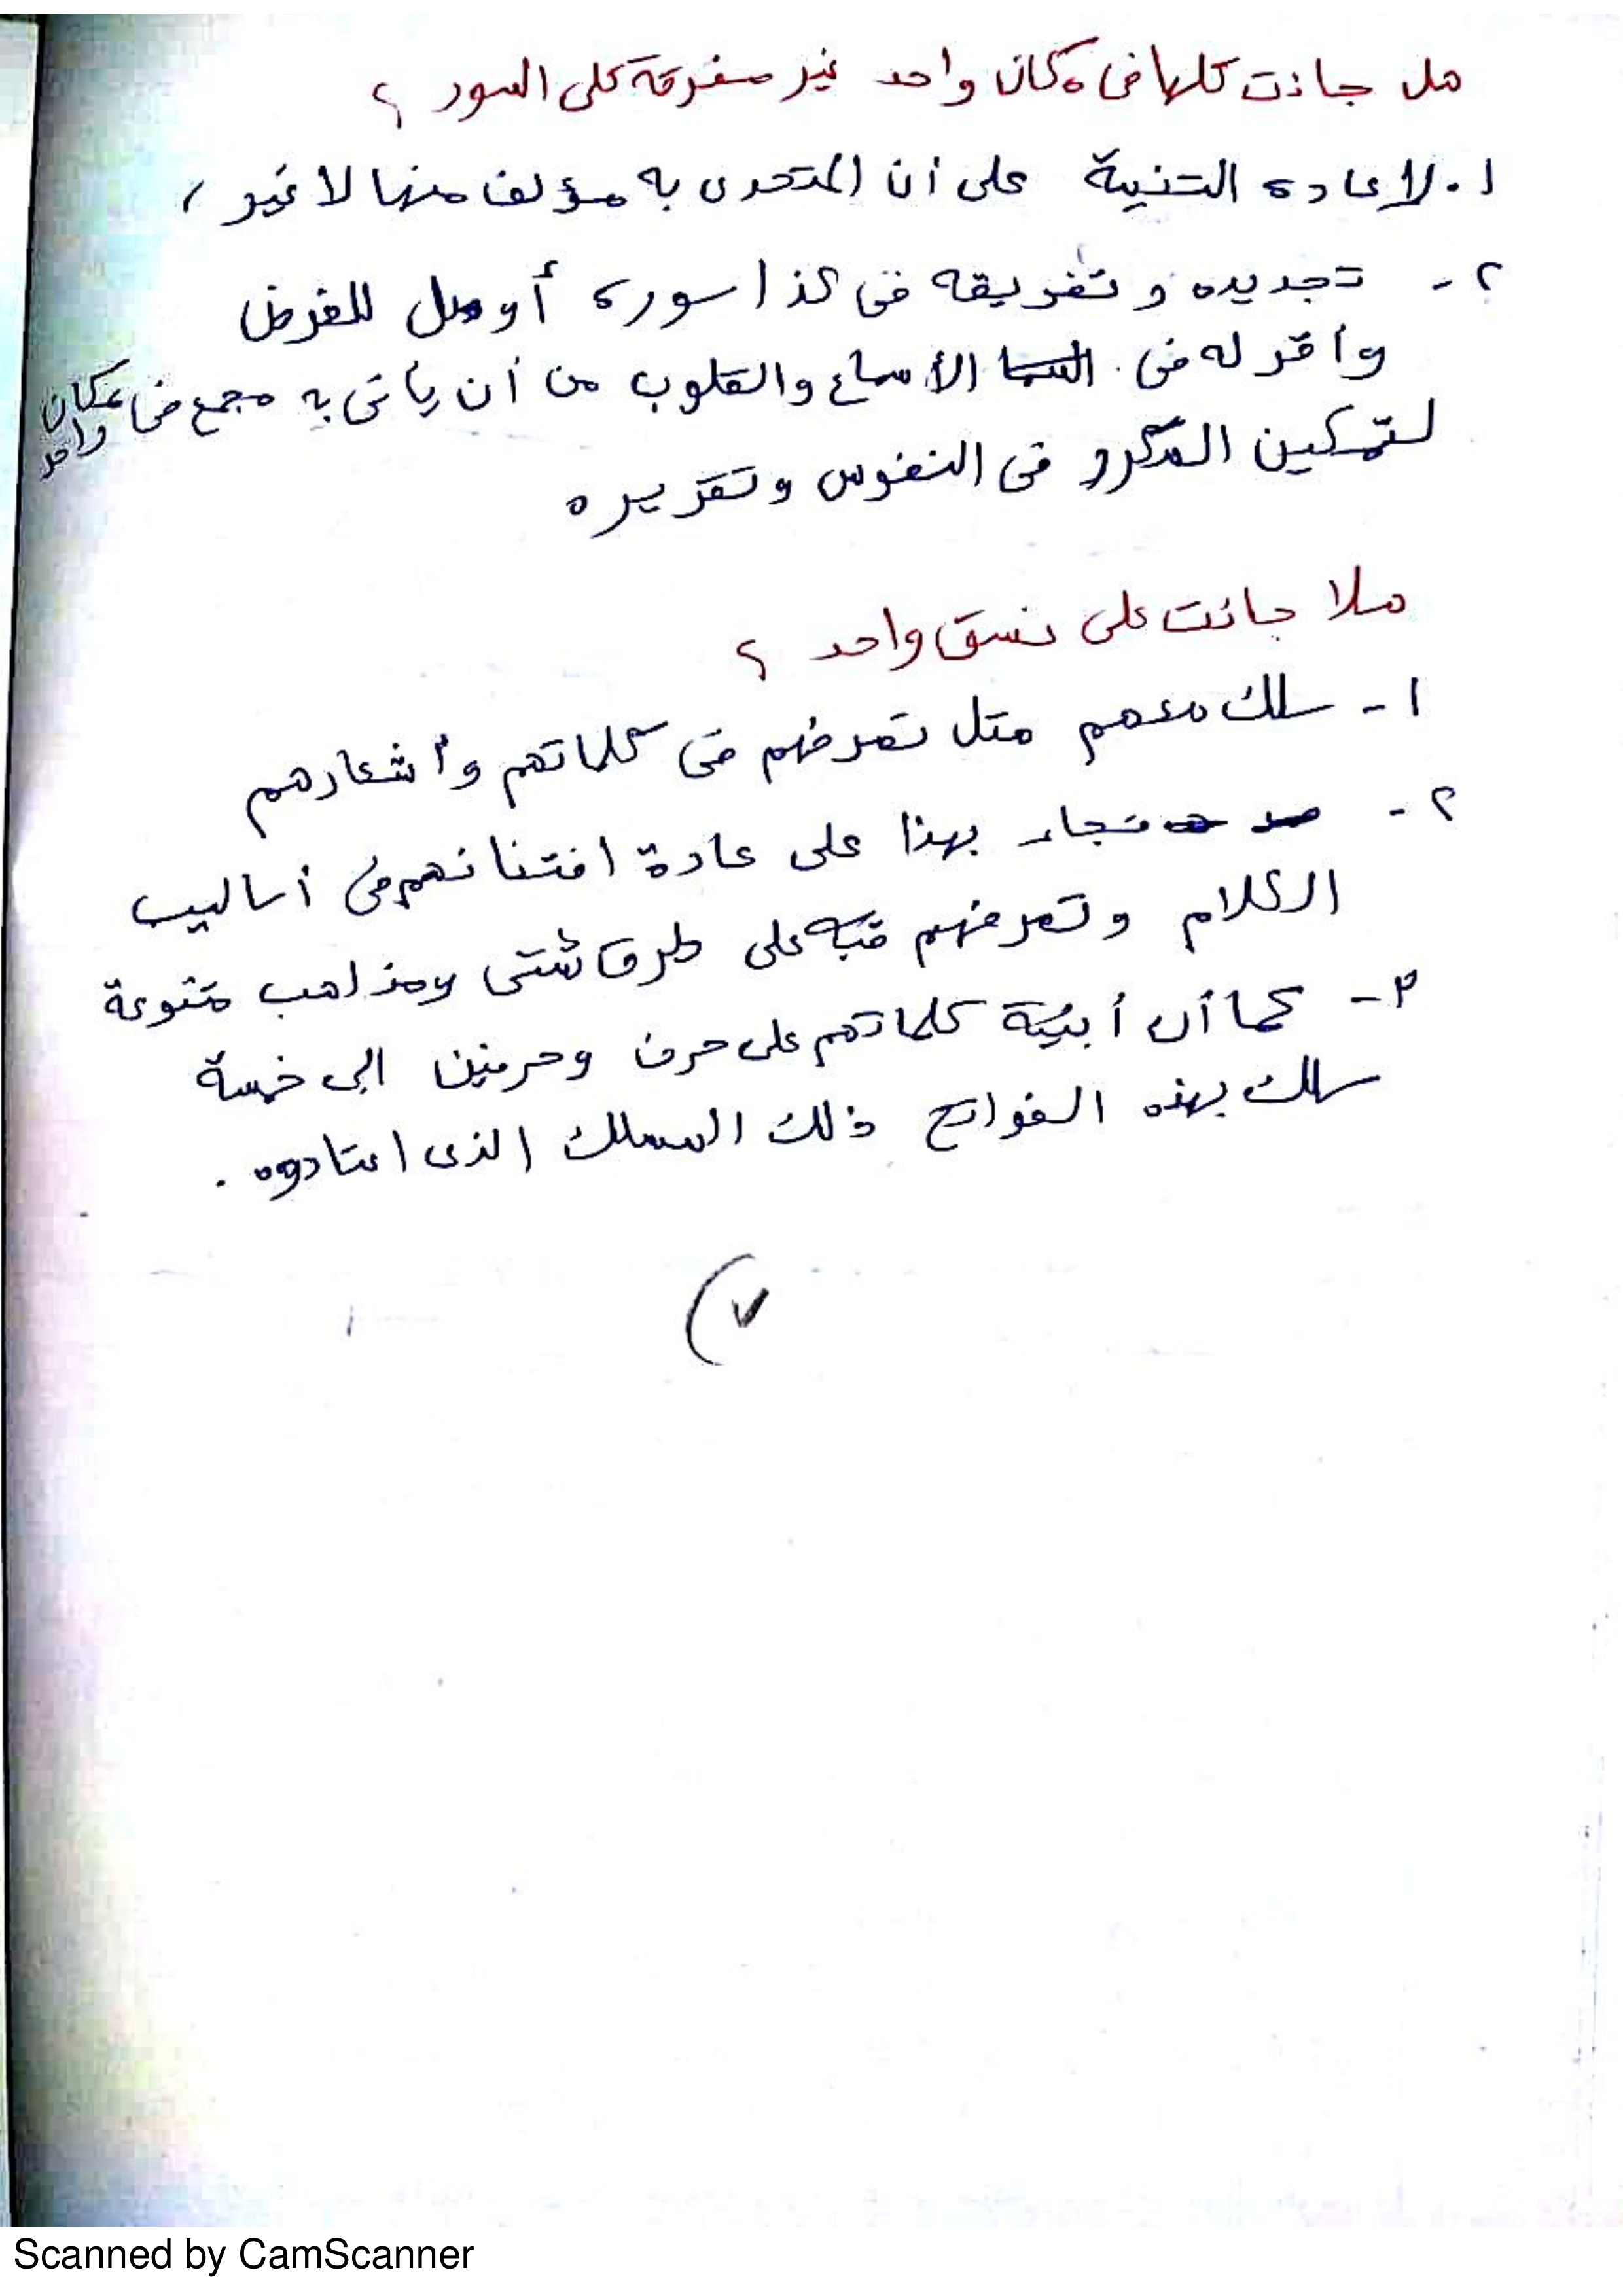 هل جائت كلها فى مكان واحد غير مفرقة على السور ؟
١. لإعاده التنبية على أن المتحدى به مؤلف منها لا غير ،
٢ - تجديده و تفريقه فى كذا سورة أوصل للغرض
وأقر له فى الأسماع والقلوب من أن يأتى به مجمع فى مكان واحد
لتمكين المكرر فى النفوس وتقريره
هلا جائت على نسق واحد ؟
١ - سلك معهم مثل تصرفهم فى كلماتهم وأشعارهم
٢ - فجاء بهذا على عادة افتنانهم فى أساليب
الكلام وتصرفهم فيه على طرق شتى ومذاهب متنوعة
٣ - كما أن أبنية كلماتهم على حرف وحرفين الى خمسة
سلك بهذه الفواتح ذلك المسلك الذى اعتادوه .
(٧
Scanned by CamScanner